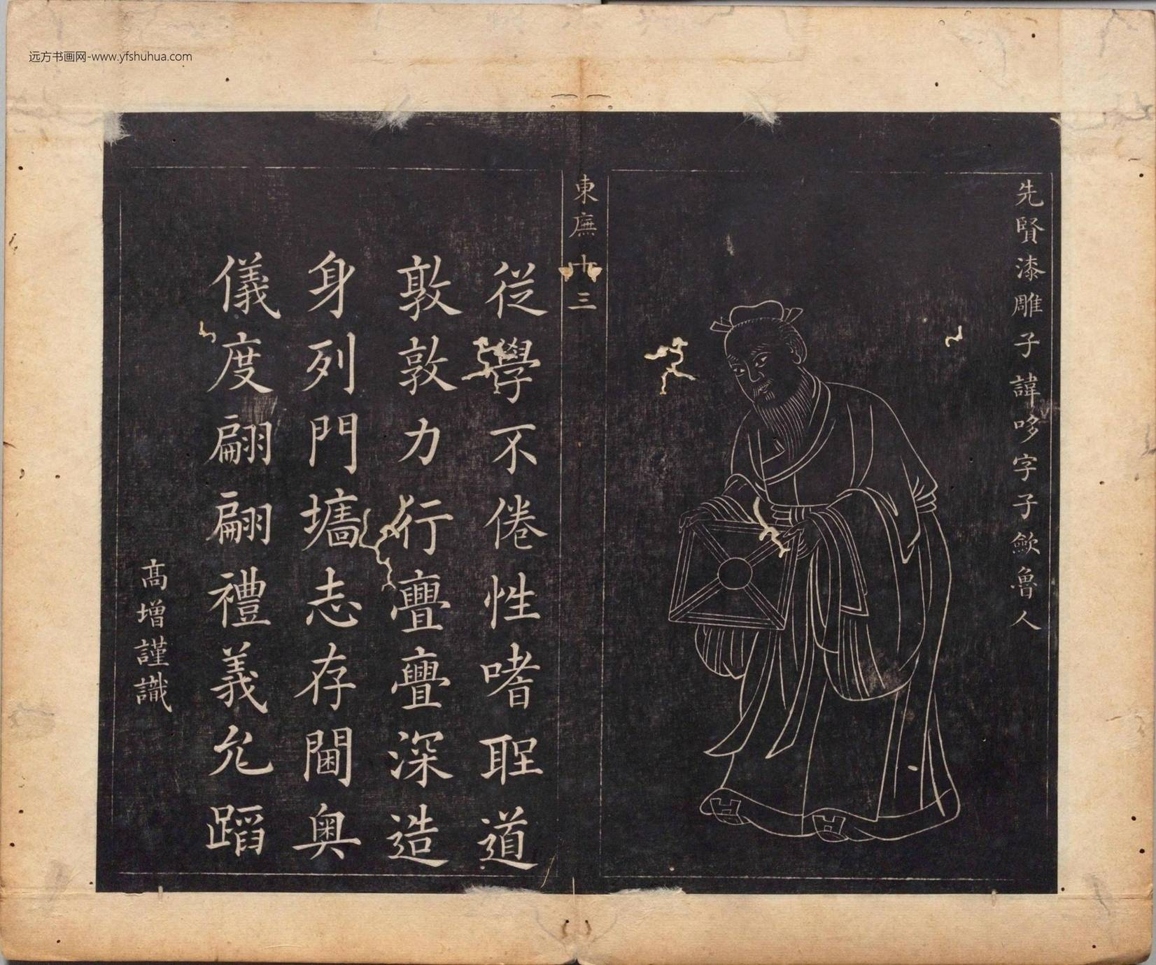 远方书画网-www.yfshuhua.com
先賢漆雕子諱哆字子歛魯人
東廡十三
從學不倦性嗜聖道
敦敦力行亹亹深造
身列門墻志存閫奧
儀度翩翩禮義允蹈
高增謹識